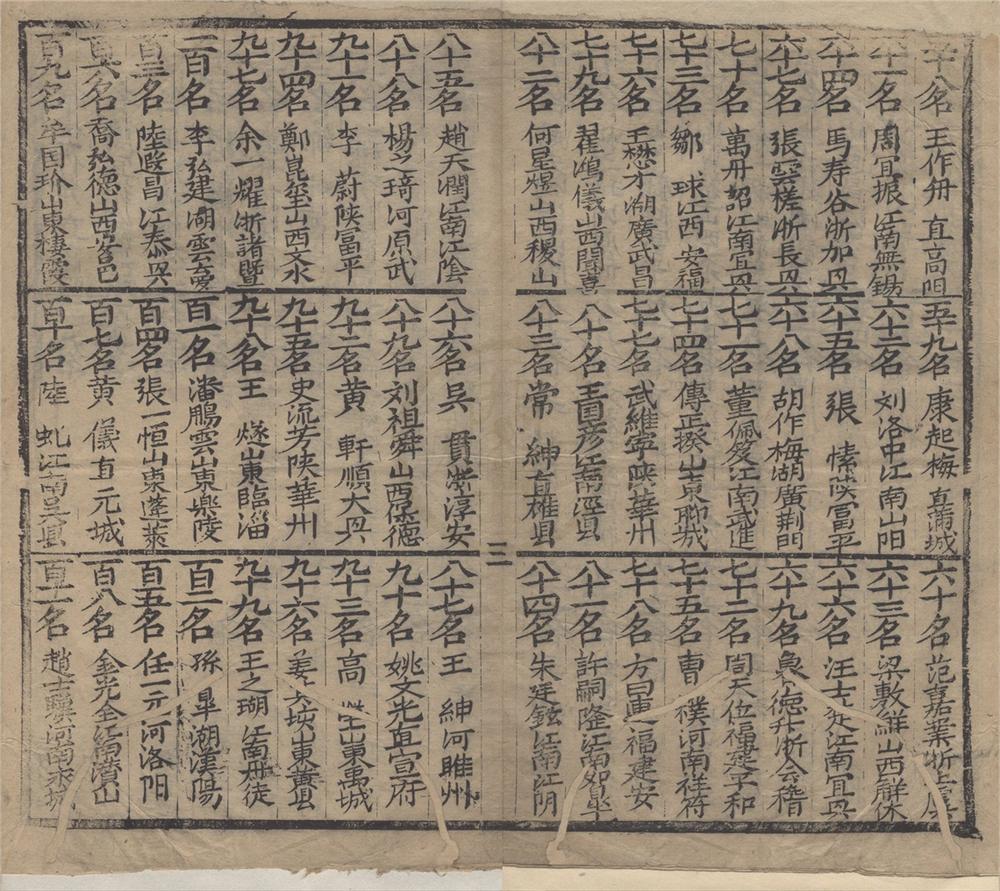 五十八名 王作舟 直高阳 五十九名 康起梅 直蒲城 六十名 范嘉業 浙上虞
六十一名 周宜振 江南無錫 六十二名 刘洛中 江南山阳 六十三名 梁敷鮮 山西解休
六十四名 馬寿谷 浙加兴 六十五名 張愫 陕富平 六十六名 汪士楚 江南宜兴
六十七名 張雲槎 浙長兴 六十八名 胡作梅 湖廣荆門 六十九名 德升 浙会稽
七十名 萬舟詔 江南宜兴 七十一名 董佩笈 江南武進 七十二名 周天位 福建
七十三名 鄒球 江西安福 七十四名 傳正揆 山東聊城 七十五名 曹樸 河南祥符
七十六名 王懋才 湖廣武昌 七十七名 武維寧 陕華州 七十八名 方曰 福建安
七十九名 翟鴻儀 山西聞喜 八十名 王国彦 江南涇县 八十一名 許嗣隆 江南如皋
八十二名 何星煜 山西稷山 八十三名 常紳 直雄县 八十四名 朱廷鋐 江南江阴
三
八十五名 趙天潤 江南江陰 八十六名 吳貫 淳安 八十七名 王紳 河睢州
八十八名 楊之琦 河原武 八十九名 刘祖舜 山西保德 九十名 姚文光 直宣府
九十一名 李蔚 陕富平 九十二名 黄軒 順大兴 九十三名 高 山東禹城
九十四名 鄭崑璧 山西文水 九十五名 史流芳 陕華州 九十六名 姜 山東黄县
九十七名 余一耀 浙諸暨 九十八名 王燧 山東臨淄 九十九名 王之瑚 江南丹徒
一百名 李弘建 湖雲夢 百一名 潘鵬雲 山東樂陵 百二名 孫皐 湖漢陽
百三名 陸遐昌 江泰兴 百四名 張一恒 山東蓬萊 百五名 任一元 河洛阳
百六名 喬弘德 山西安邑 百七名 黄儀 直元城 百八名 金光全 江南潛山
百九名 牟国玠 山東棲霞 百十名 陸 江南吴县 百十一名 趙士驥 河南永城